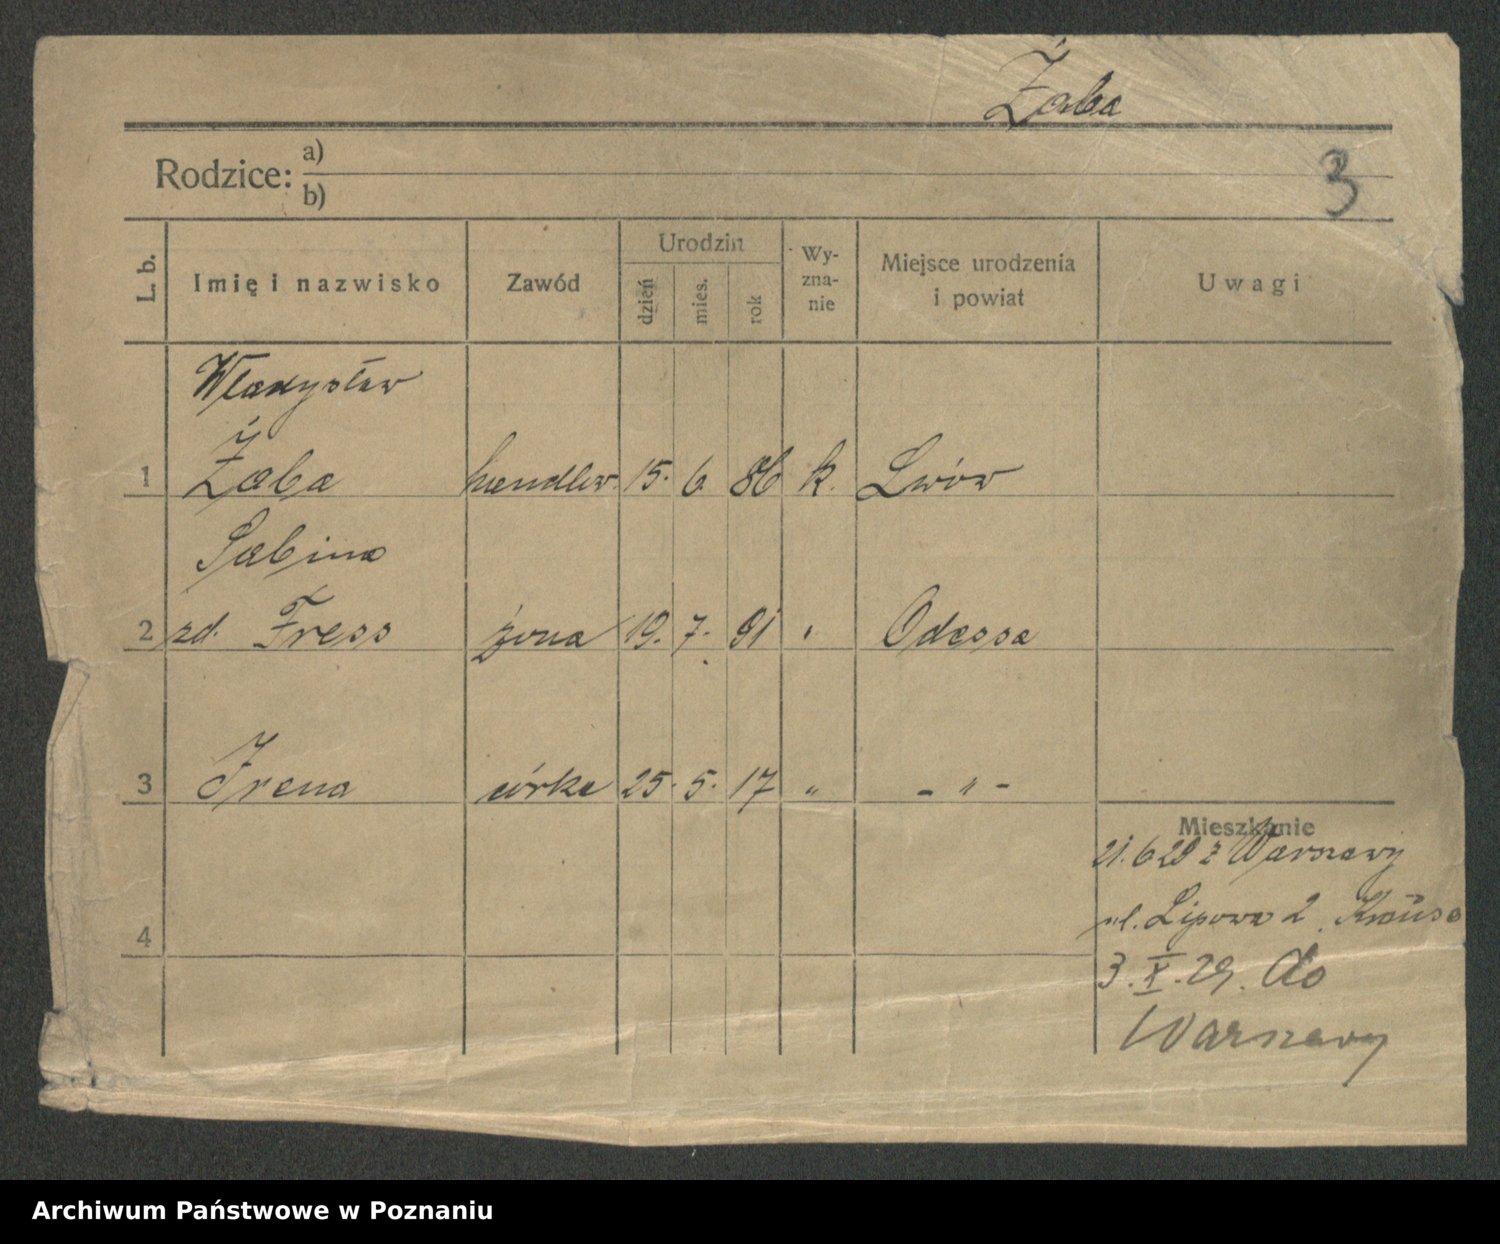 Żaba
Rodzice: a)
b)
3
L. b. Imię i nazwisko Zawód Urodzin dzień mies. rok Wy-zna-nie Miejsce urodzenia i powiat Uwagi
Władysław
1 Żaba handlow. 15. 6. 86 k. Lwów
Sabina
2 zd. Fress żona 19. 7. 91 " Odessa
3 Irena córka 25. 5. 17 " - " -
Mieszkanie
21. 6 29 z Warszawy
ul. Lipowa 2. Krause
4
3. X. 29. do
Warszawy
Archiwum Państwowe w Poznaniu